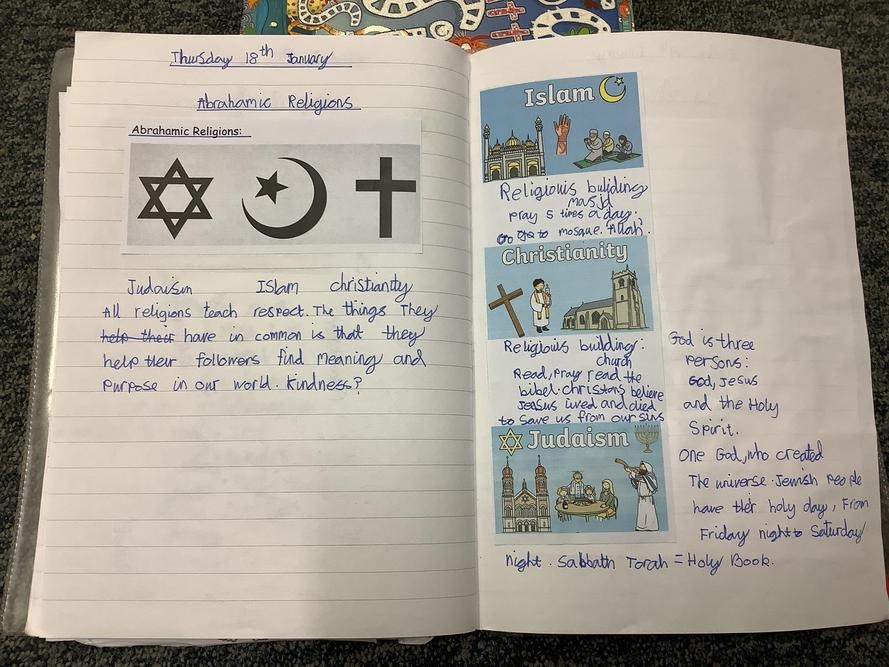 Thursday 18th January
Abrahamic Religions
Abrahamic Religions:
Judaism Islam christianity
All religions teach respect. The things They
help their have in common is that they
help their followers find Meaning and
Purpose in our world. Kindness?
Islam
Religious building
masjid
Pray 5 times a day.
Go to mosque. Allah.
Christianity
Religious building:
church
Read, Pray read the
bibel. christans believe
Jesus lived and died
to save us from our sins
God is three
Persons:
God, Jesus
and the Holy
Spirit.
Judaism
One God, who created
The universe. Jewish People
have their holy day, From
Friday night to Saturday
night. Sabbath Torah = Holy Book.